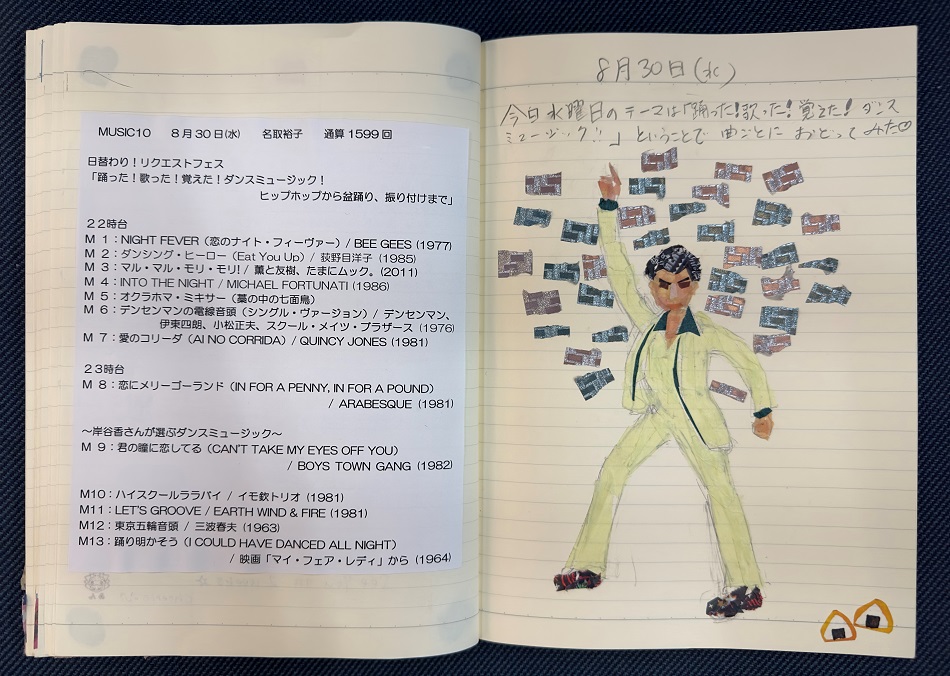 MUSIC10 8月30日(水) 名取裕子 通算1599回
日替わり！リクエストフェス
「踊った！歌った！覚えた！ダンスミュージック！
ヒップホップから盆踊り、振り付けまで」
22時台
M 1：NIGHT FEVER（恋のナイト・フィーヴァー）/ BEE GEES (1977)
M 2：ダンシング・ヒーロー（Eat You Up）/ 荻野目洋子 (1985)
M 3：マル・マル・モリ・モリ! / 薫と友樹、たまにムック。(2011)
M 4：INTO THE NIGHT / MICHAEL FORTUNATI (1986)
M 5：オクラホマ・ミキサー（藁の中の七面鳥）
M 6：デンセンマンの電線音頭（シングル・ヴァージョン）/ デンセンマン、
伊東四朗、小松正夫、スクール・メイツ・ブラザース (1976)
M 7：愛のコリーダ（AI NO CORRIDA）/ QUINCY JONES (1981)
23時台
M 8：恋にメリーゴーランド（IN FOR A PENNY, IN FOR A POUND）
/ ARABESQUE (1981)
～岸谷香さんが選ぶダンスミュージック～
M 9：君の瞳に恋してる（CAN'T TAKE MY EYES OFF YOU）
/ BOYS TOWN GANG (1982)
M10：ハイスクールララバイ / イモ欽トリオ (1981)
M11：LET'S GROOVE / EARTH WIND & FIRE (1981)
M12：東京五輪音頭 / 三波春夫 (1963)
M13：踊り明かそう（I COULD HAVE DANCED ALL NIGHT）
/ 映画「マイ・フェア・レディ」から (1964)
8月30日(水)
今日水曜日のテーマは「踊った！歌った！覚えた！ダンス
ミュージック!!」ということで 曲ごとに おどってみた♡